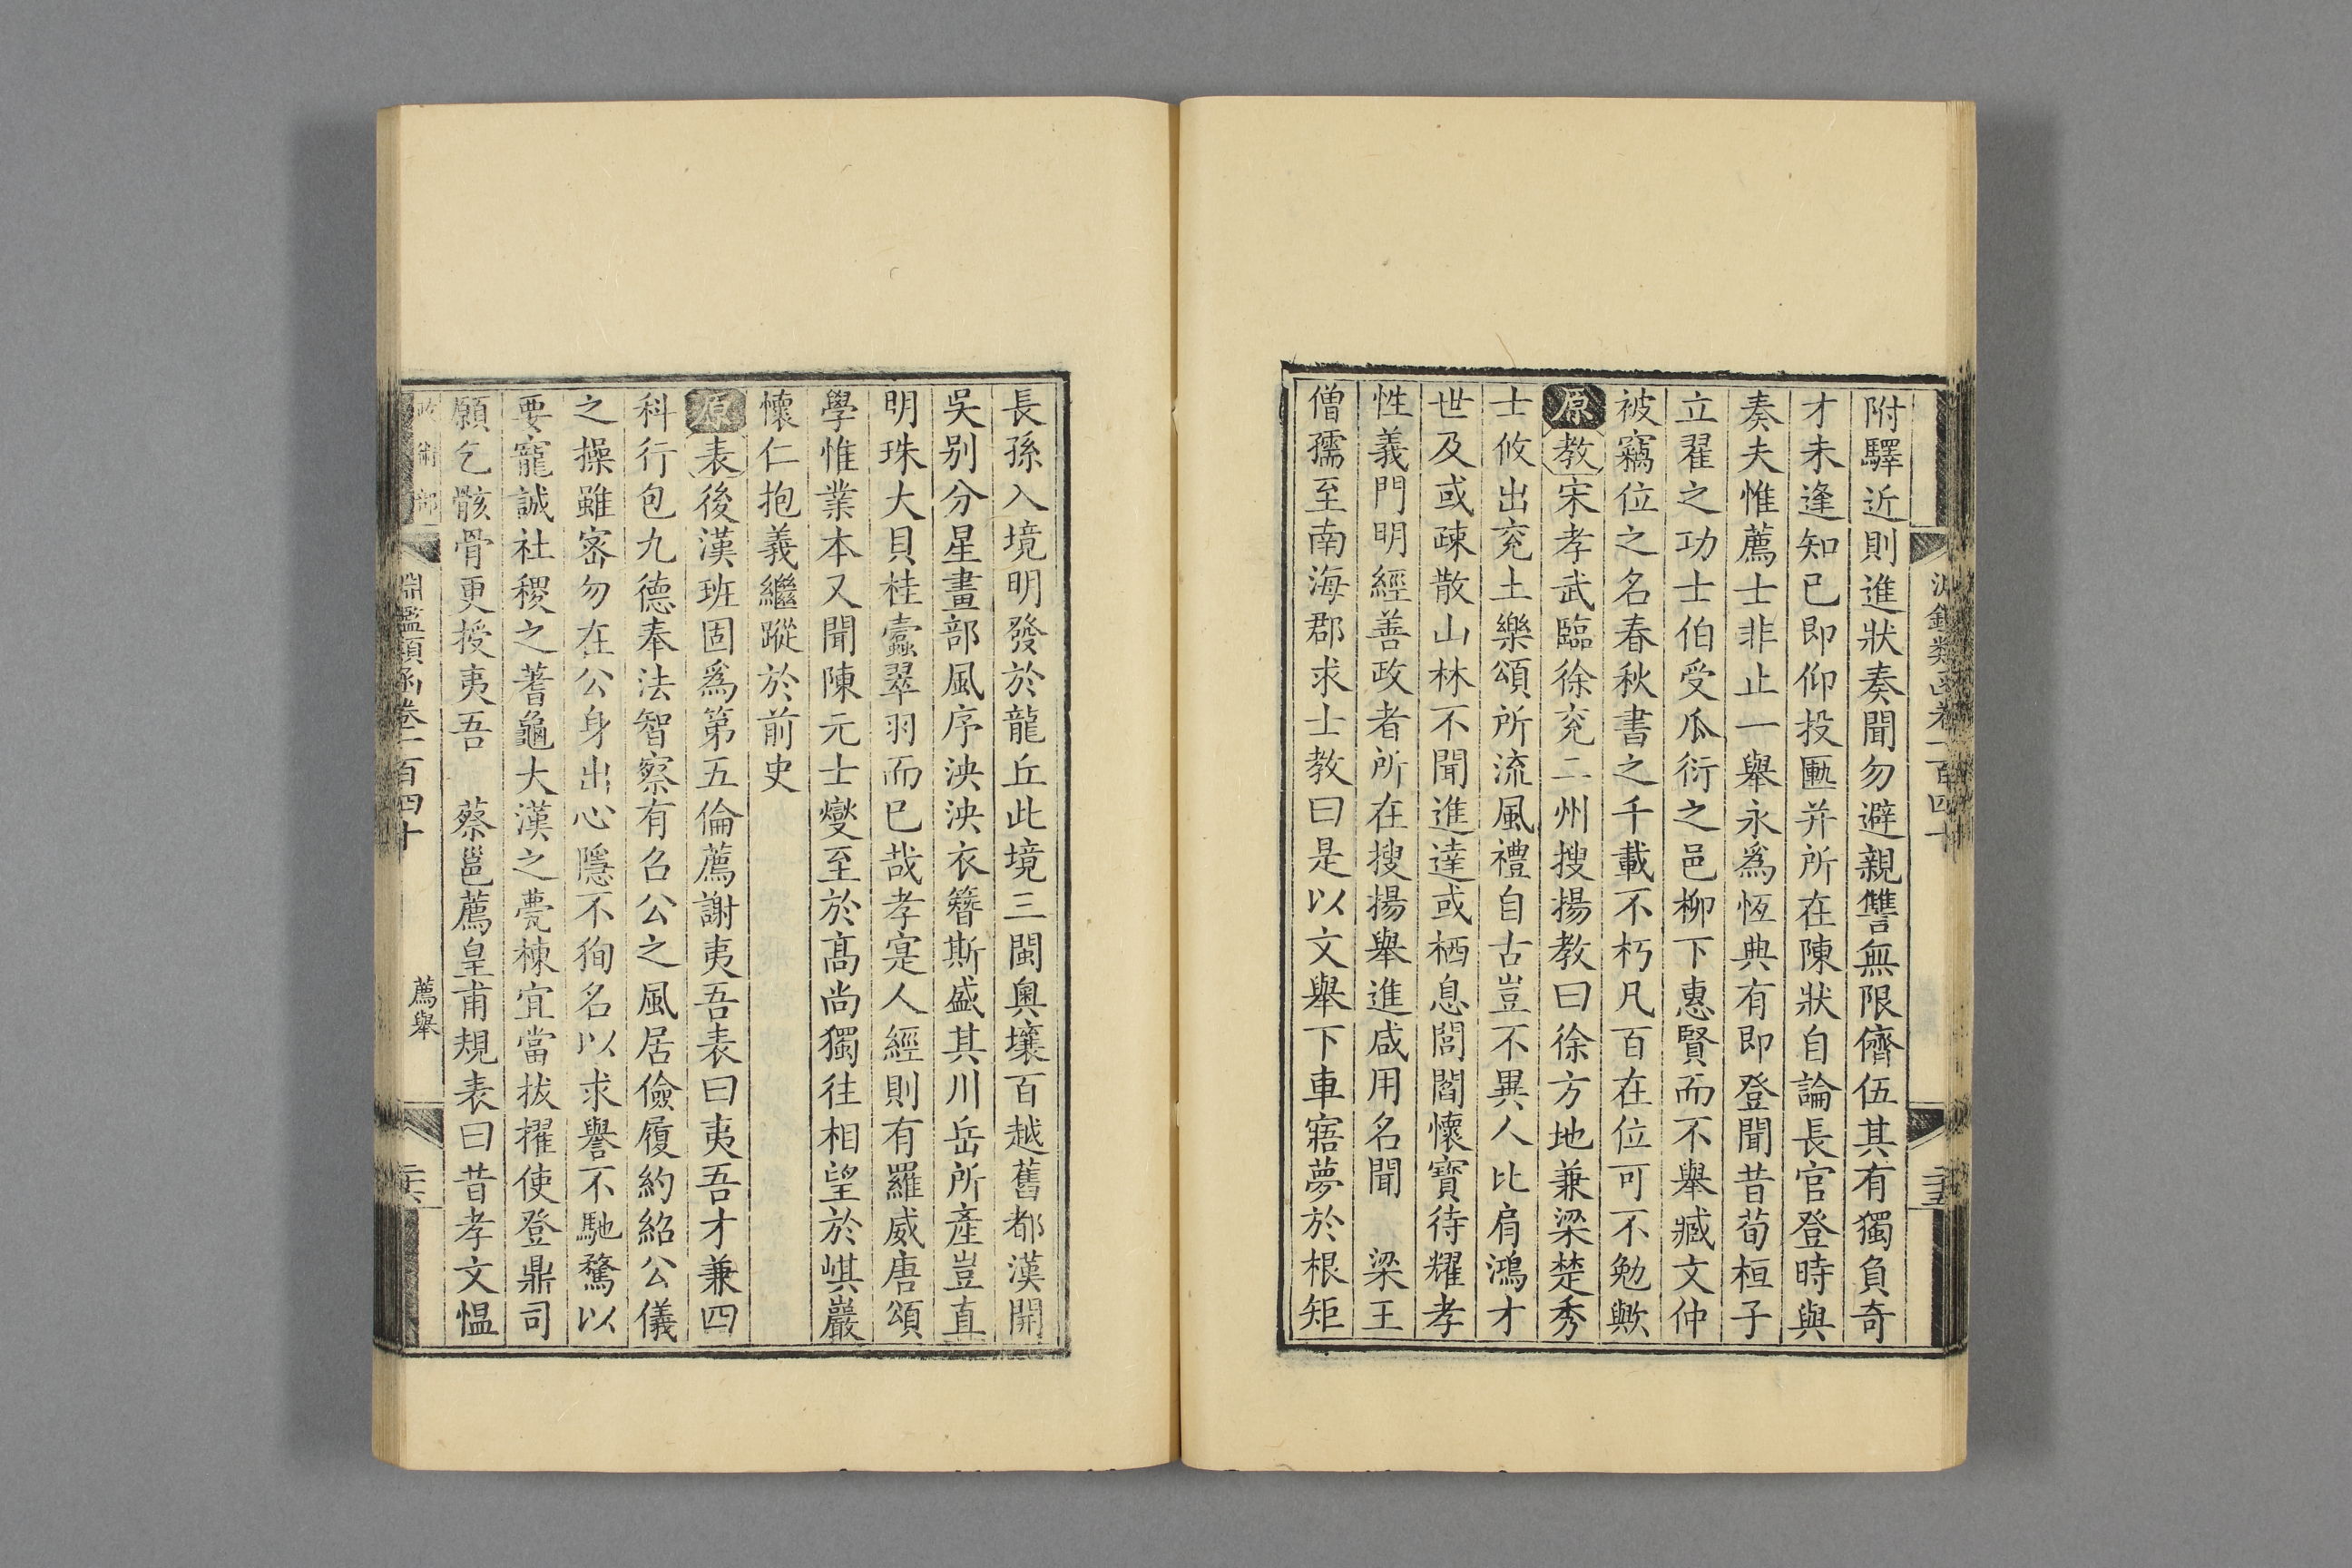 附驛近則進狀奏聞勿避親讐無限儕伍其有獨負奇
才未逢知已即仰投匭并所在陳狀自論長官登時與
奏夫惟薦士非止一舉永爲恆典有即登聞昔荀桓子
立翟之功士伯受瓜衍之邑柳下惠賢而不舉臧文仲
被竊位之名春秋書之千載不朽凡百在位可不勉歟
原教宋孝武臨徐兖二州搜揚教曰徐方地兼梁楚秀
士攸出兖土樂頌所流風禮自古豈不異人比肩鴻才
世及或疎散山林不聞進達或栖息閭閻懷寶待耀孝
性義門明經善政者所在搜揚舉進咸用名聞　梁王
僧孺至南海郡求士教曰是以文舉下車寤夢於根矩
長孫入境明發於龍丘此境三閩奥壤百越舊都漢開
吳别分星畫部風序泱泱衣簪斯盛其川岳所產豈直
明珠大貝桂蠹翠羽而已哉孝寔人經則有羅威唐頌
學惟業本又聞陳元士燮至於髙尚獨往相望於岷巖
懷仁抱義繼蹤於前史
原表後漢班固爲第五倫薦謝夷吾表曰夷吾才兼四
科行包九德奉法智察有召公之風居儉履約紹公儀
之操雖宻勿在公身出心隱不狥名以求譽不馳騖以
要寵誠社稷之蓍龜大漢之甍棟宜當拔擢使登鼎司
願乞骸骨更授夷吾　蔡邕薦皇甫規表曰昔孝文愠
政術部　淵鑑類函卷一百四十　薦舉　二十六